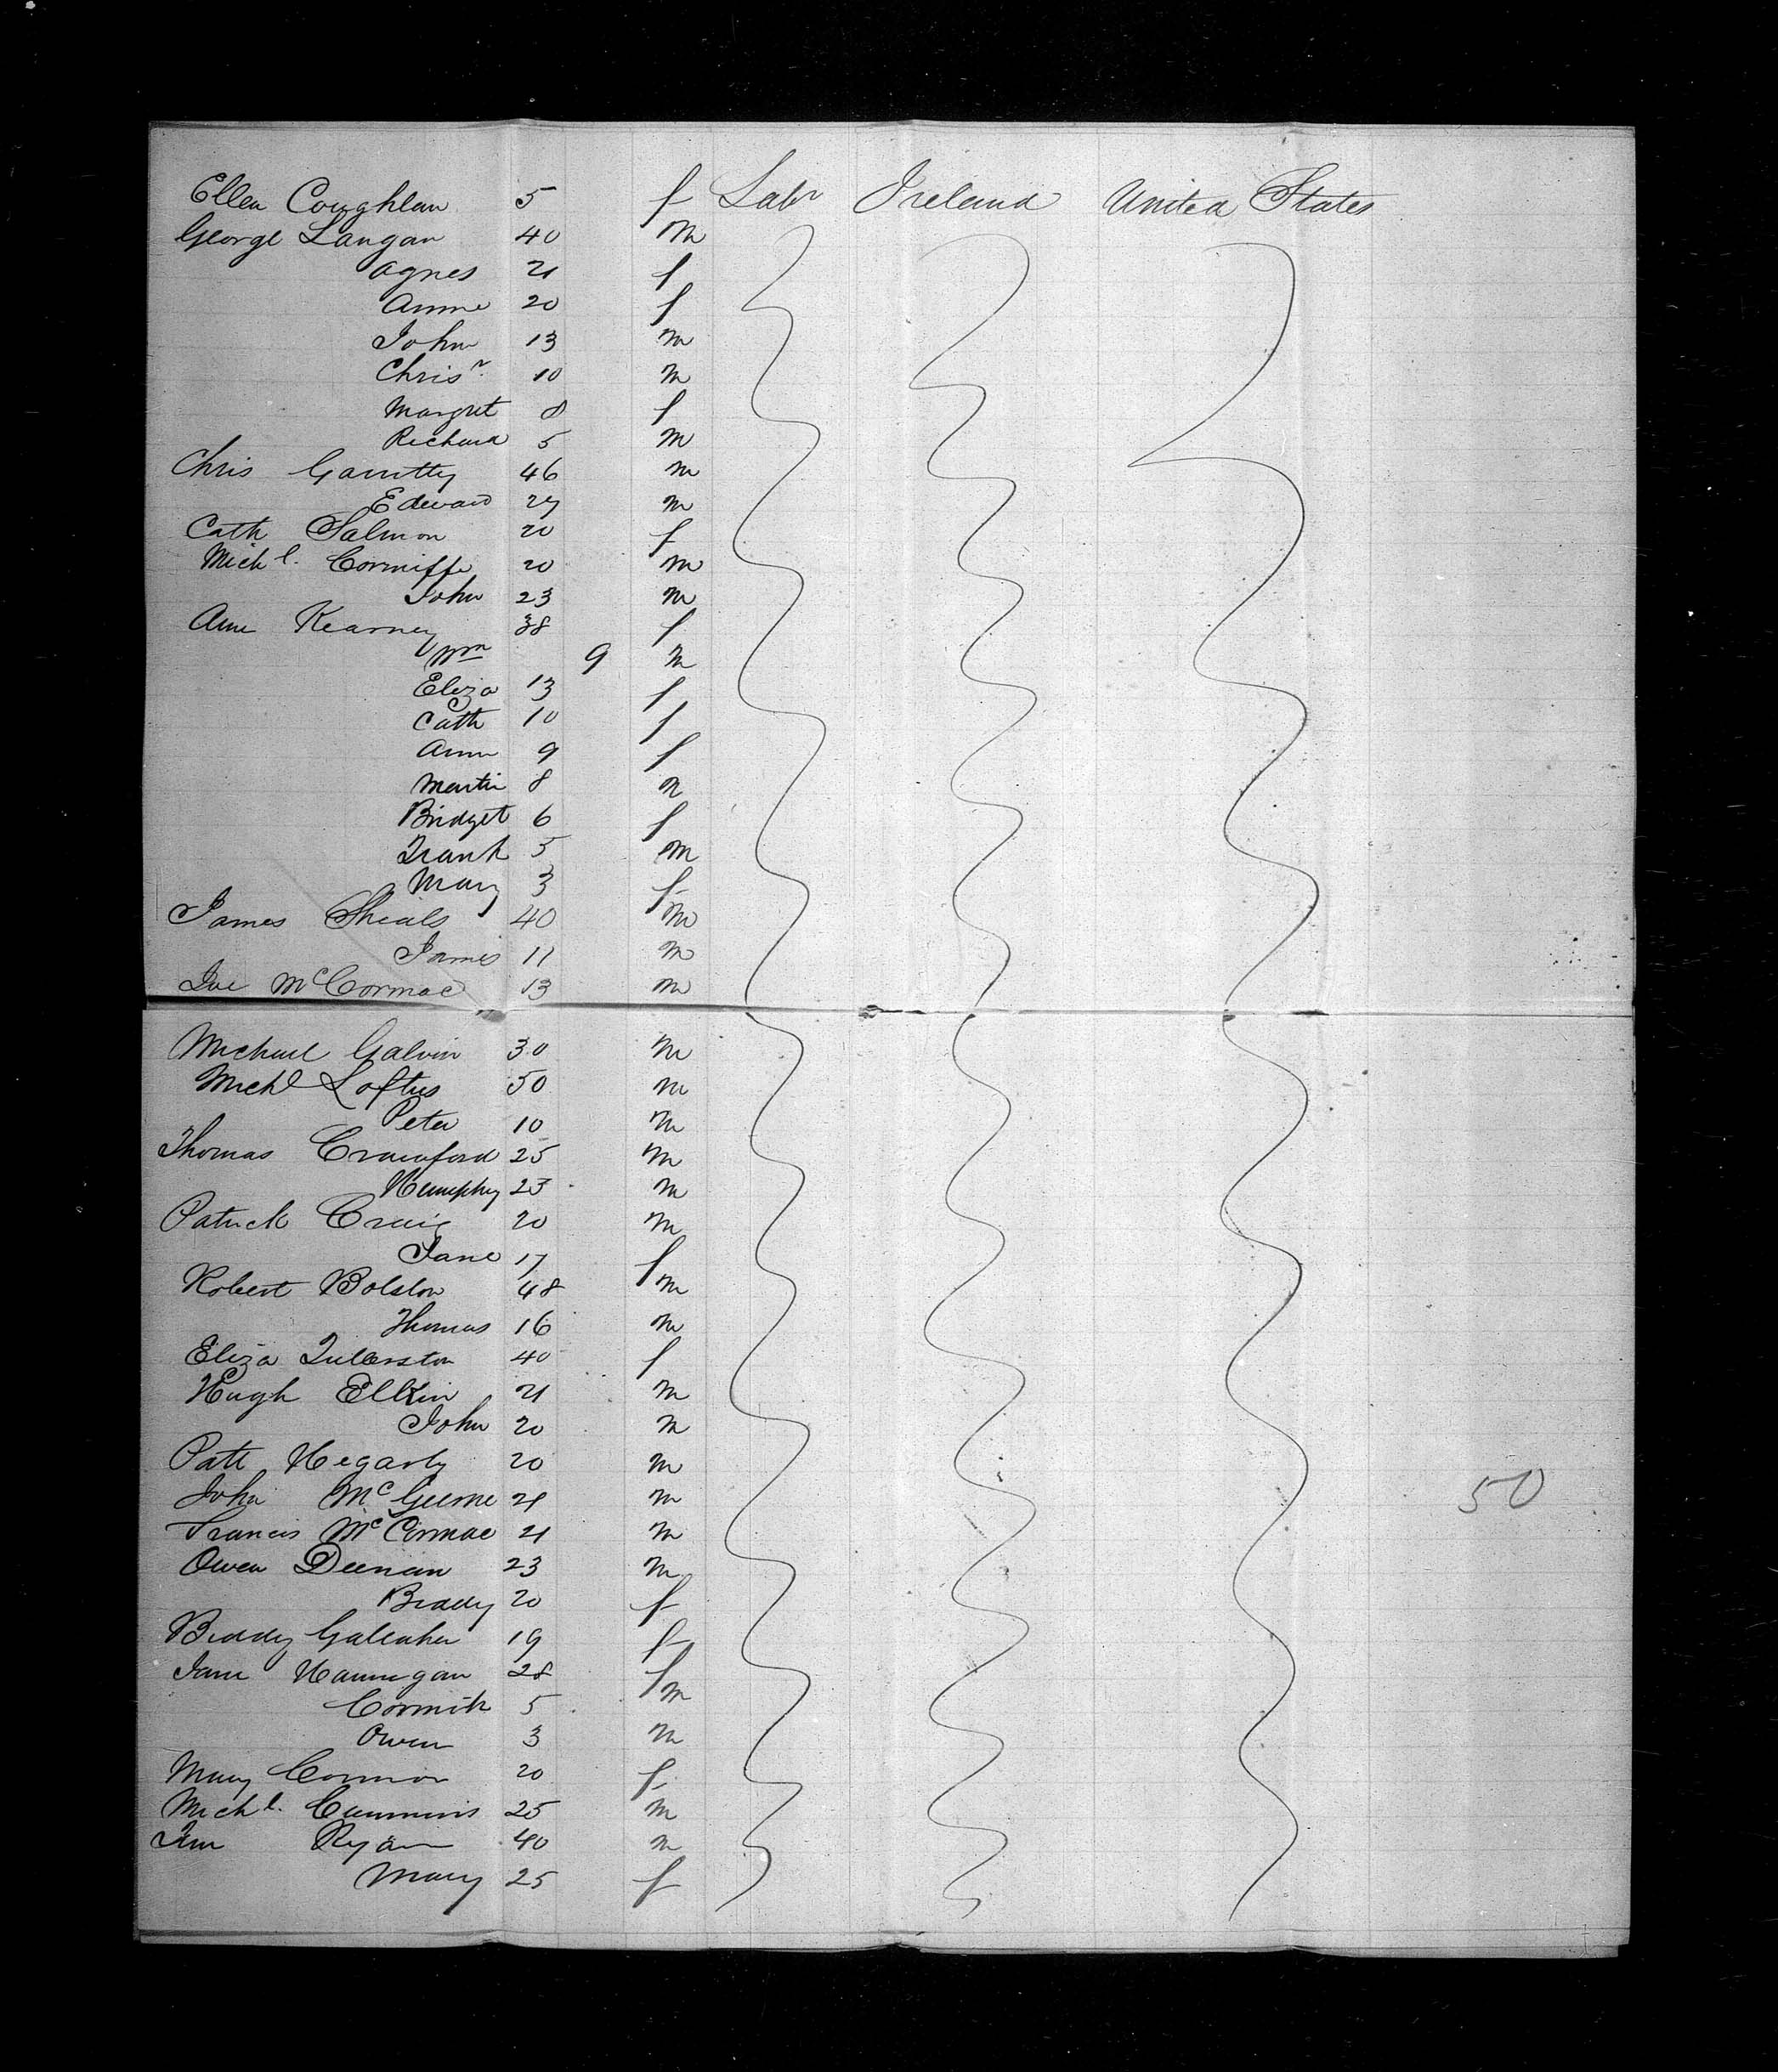 Ellen Coughlan 5 f Labr Ireland United States
George Langan 40 m
Agnes 21 f
Anne 20 f
John 13 m
Chrisr. 10 m
Margret 8 f
Richard 5 m
Chris Garritty 46 m
Edward 27 m
Cath Salmon 20 f
Michl. Cormiffe 20 m
John 23 m
Ann Kearney 38 f
Wm 9 m
Eliza 13 f
Cath 10 f
Ann 9 f
Martin 8 m
Bridget 6 f
Frank 5 m
Mary 3 f
James Sheals 40 m
James 11 m
McCormac 13 m
Michael Galvin 30 m
Michl Loftus 50 m
Peter 10 m
Thomas Crawford 25 m
Humphy 23 m
Patrick Craig 20 m
Jane 17 f
Robert Bolston 48 m
Thomas 16 m
Eliza Fullerston 40 f
Hugh Elkin 21 m
John 20 m
Patt Hegarty 20 m
John 21 m
50
Francis McCormac 21 m
Owen Deenan 23 m
Biddy 20 f
Biddy Gallaher 19 f
Jane Hannigan 28 f
Cormick 5 m
Owen 3 m
Mary Connor 20 f
Michl. Cummins 25 m
Ryan 40 m
Mary 25 f